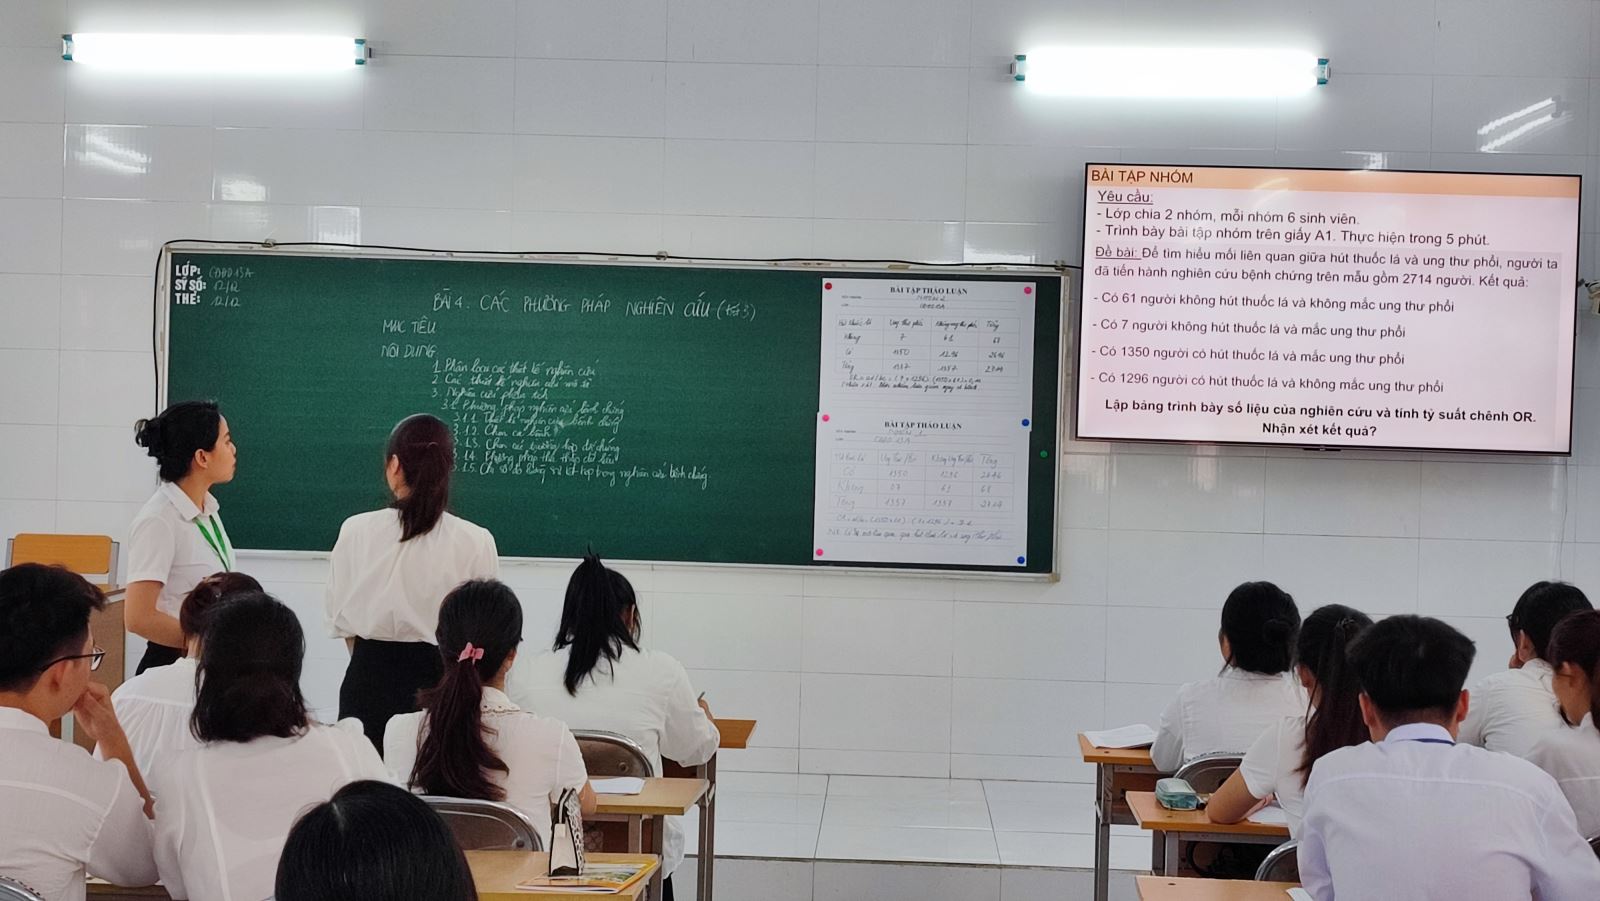 LỚP: CĐĐD 13A
SỸ SỐ: 12/12
THỂ: 12/12
BÀI 4. CÁC PHƯƠNG PHÁP NGHIÊN CỨU (tiết 3)
MỤC TIÊU
NỘI DUNG
1. Phân loại các thiết kế nghiên cứu
2. Các thiết kế nghiên cứu mô tả
3. Nghiên cứu phân tích
3.1. Phương pháp nghiên cứu bệnh chứng
3.1.1. Thiết kế nghiên cứu bệnh chứng
3.1.2. Chọn ca bệnh
3.1.3. Chọn các trường hợp đối chứng
3.1.4. Phương pháp thu thập dữ liệu
3.1.5. Chỉ số đo lường sự kết hợp trong nghiên cứu bệnh chứng.
BÀI TẬP THẢO LUẬN
NHÓM 2
CĐĐD13A
Hút thuốc lá Ung thư phổi Không ung thư phổi Tổng
Không 7 61 68
Có 1350 1296 2646
Tổng 1357 1357 2714
BÀI TẬP THẢO LUẬN
NHÓM 1
CĐĐD 13A
Hút thuốc lá Ung thư phổi Không ung thư phổi Tổng
Có 1350 1296 2646
Không 07 61 68
Tổng 1357 1357 2714
BÀI TẬP NHÓM
Yêu cầu:
- Lớp chia 2 nhóm, mỗi nhóm 6 sinh viên.
- Trình bày bài tập nhóm trên giấy A1. Thực hiện trong 5 phút.
Đề bài: Để tìm hiểu mối liên quan giữa hút thuốc lá và ung thư phổi, người ta
đã tiến hành nghiên cứu bệnh chứng trên mẫu gồm 2714 người. Kết quả:
- Có 61 người không hút thuốc lá và không mắc ung thư phổi
- Có 7 người không hút thuốc lá và mắc ung thư phổi
- Có 1350 người có hút thuốc lá và mắc ung thư phổi
- Có 1296 người có hút thuốc lá và không mắc ung thư phổi
Lập bảng trình bày số liệu của nghiên cứu và tính tỷ suất chênh OR.
Nhận xét kết quả?